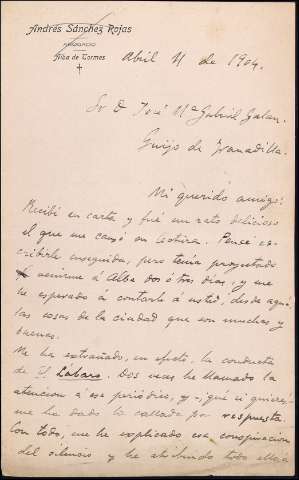 Andrés Sánchez Rojas
ABOGADO
Alba de Tormes
Abril 11 de 1904.
Sr D José Mª Gabriel Galan.
Guijo de Granadilla.
Mi querido amigo:
Recibí su carta y fué un rato delicioso
el que me causó su lectura. Pensé es-
cribirle enseguida, pero tenía proyectado
venirme á Alba dos ó tres días, y me
he esperado á contarle á usted, desde aquí,
las cosas de la ciudad que son muchas y
buenas.
Me ha extrañado, en efecto, la conducta
de El Lábaro. Dos veces he llamado la
atención á ese periódico, y ni siquiera
me ha dado la callada por respuesta.
Con todo, me he explicado esa conspiración
del silencio y he atribuido todo ello á